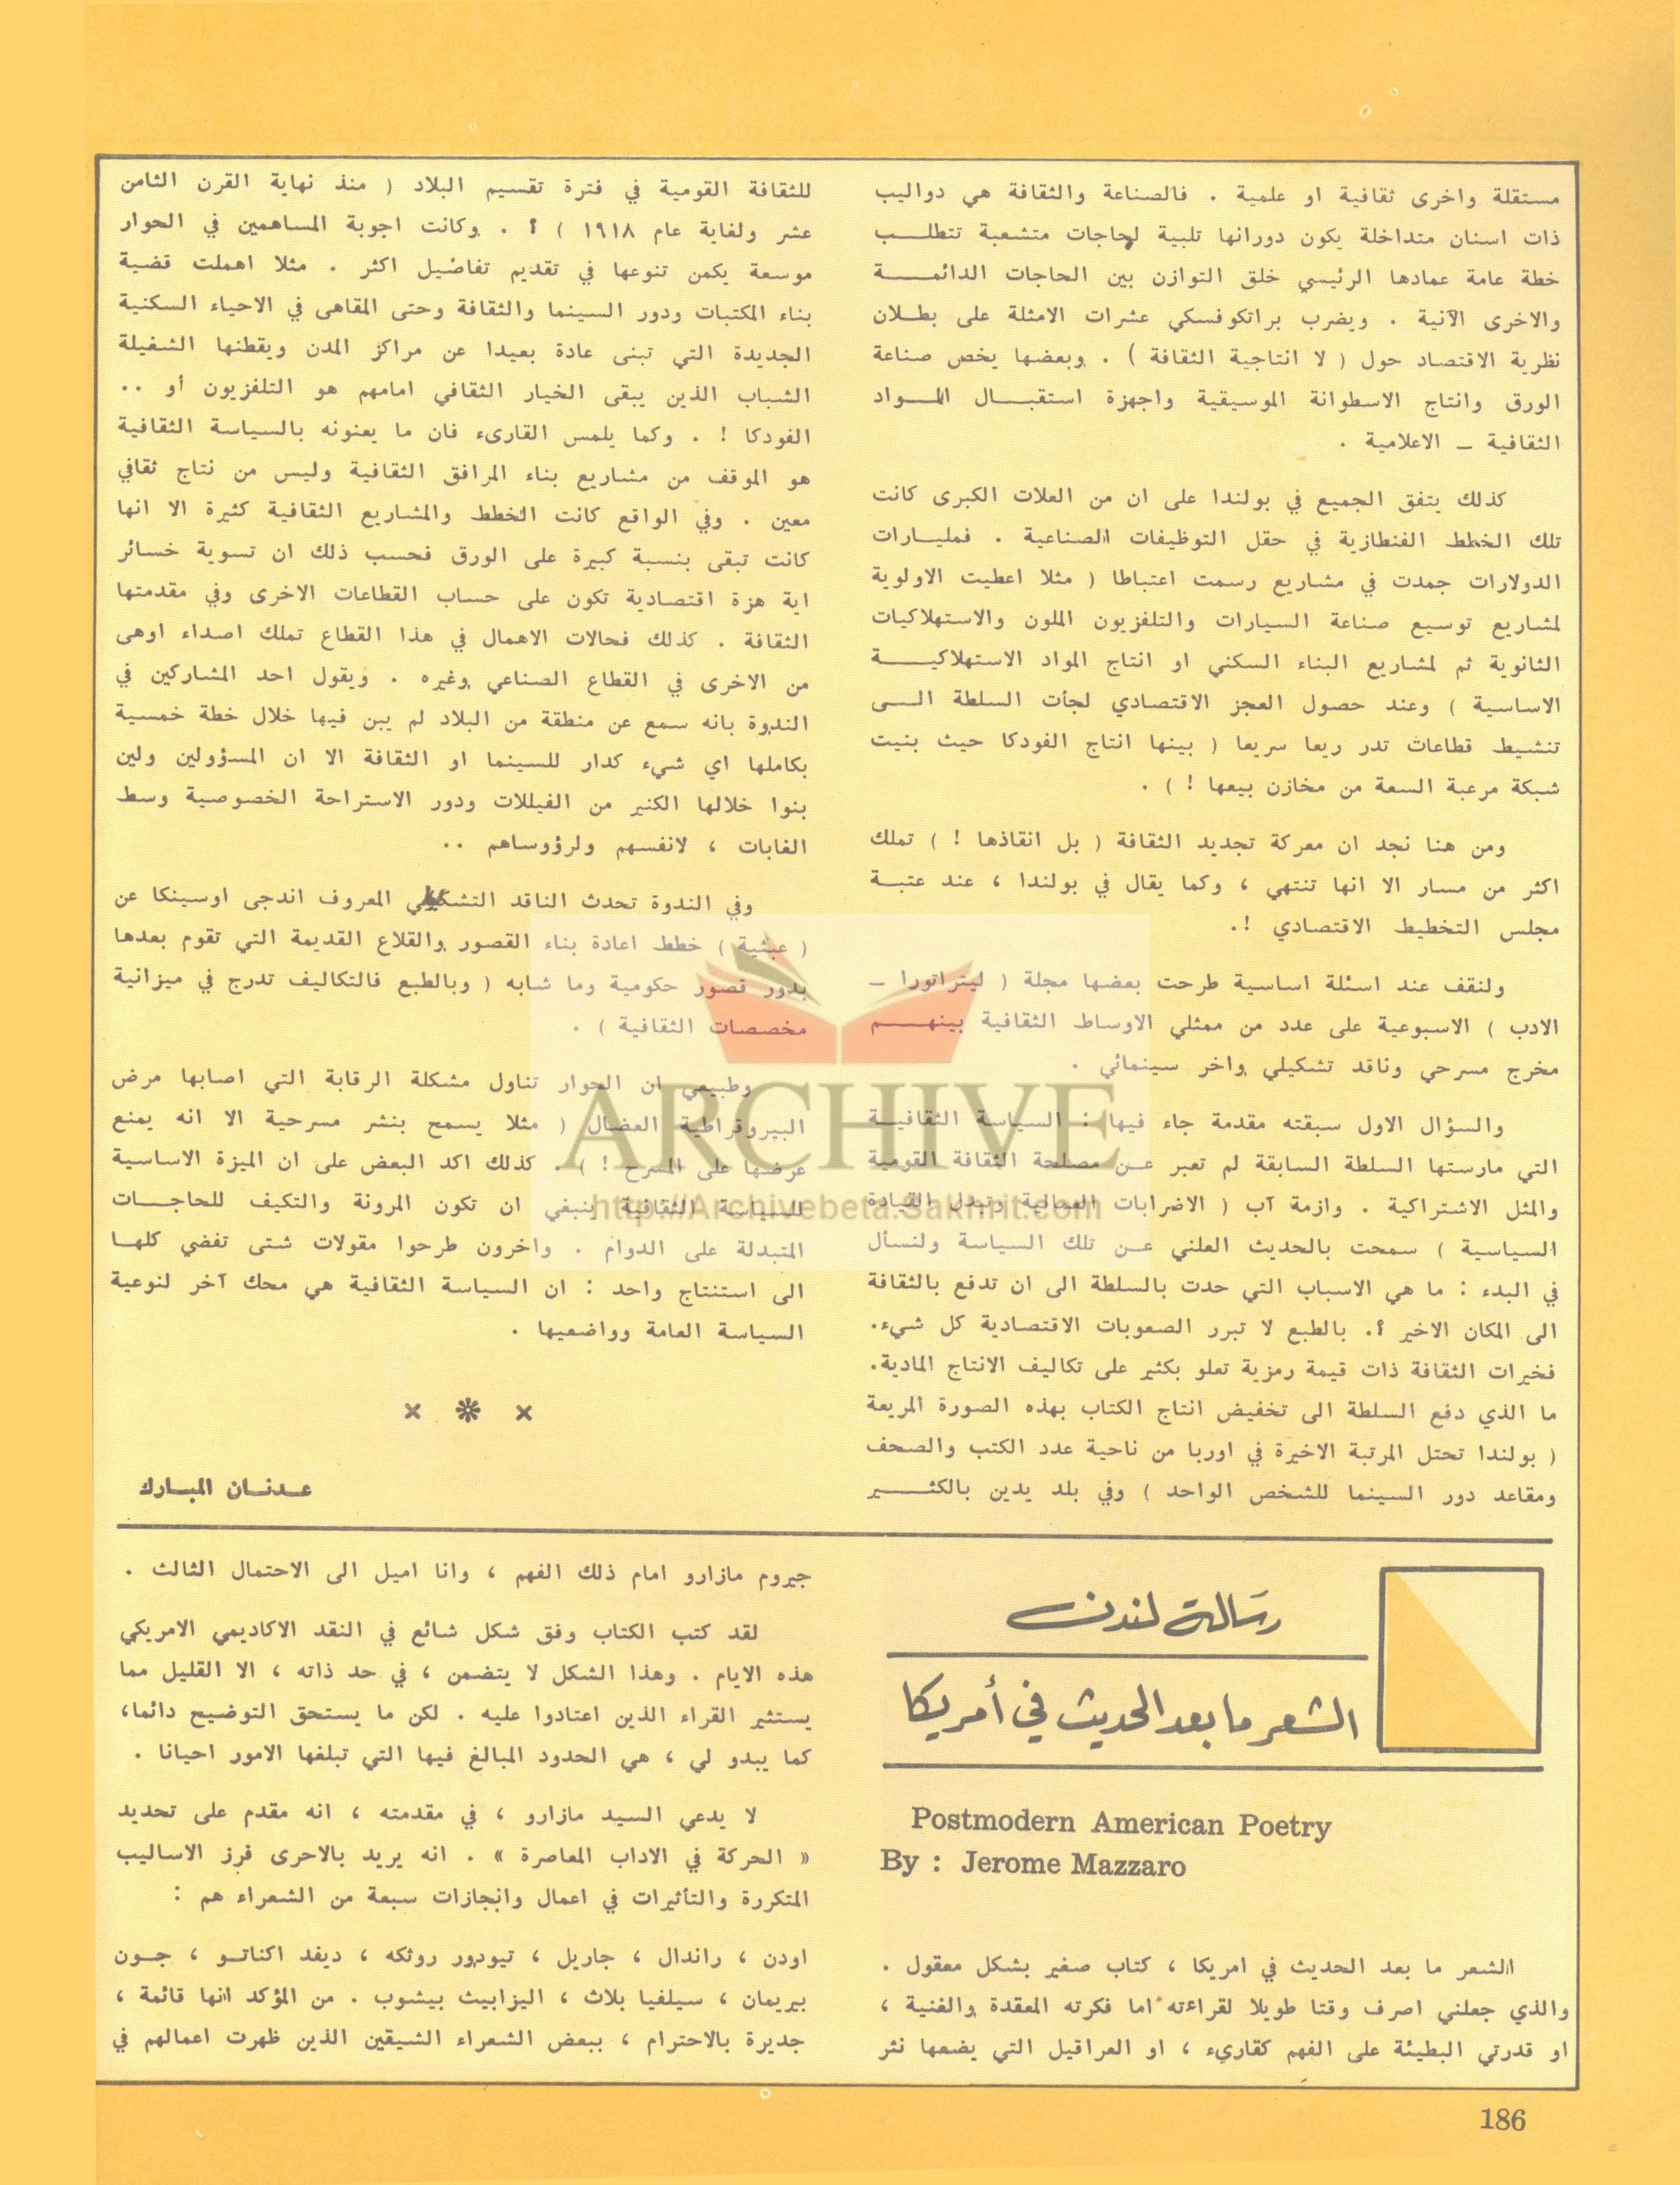 مستقلة واخرى ثقافية او علمية . فالصناعة والثقافة هي دواليب
ذات اسنان متداخلة يكون دورانها تلبية لحاجات متشعبة تتطلب
خطة عامة عمادها الرئيسي خلق التوازن بين الحاجات الدائمة
والاخرى الآنية . ويضرب براتكوفسكي عشرات الامثلة على بطلان
نظرية الاقتصاد حول ( لا انتاجية الثقافة ) . وبعضها يخص صناعة
الورق وانتاج الاسطوانة الموسيقية واجهزة استقبال المواد
الثقافية ـ الاعلامية .
كذلك يتفق الجميع في بولندا على ان من العلات الكبرى كانت
تلك الخطط الفنطازية في حقل التوظيفات الصناعية . فمليارات
الدولارات جمدت في مشاريع رسمت اعتباطا ( مثلا اعطيت الاولوية
لمشاريع توسيع صناعة السيارات والتلفزيون الملون والاستهلاكيات
الثانوية ثم لمشاريع البناء السكني او انتاج المواد الاستهلاكية
الاساسية ) وعند حصول العجز الاقتصادي لجأت السلطة الى
تنشيط قطاعات تدر ريعا سريعا ( بينها انتاج الفودكا حيث بنيت
شبكة مرعبة السعة من مخازن بيعها ! ) .
ومن هنا نجد ان معركة تجديد الثقافة ( بل انقاذها ! ) تملك
اكثر من مسار الا انها تنتهي ، وكما يقال في بولندا ، عند عتبة
مجلس التخطيط الاقتصادي !.
ولنقف عند اسئلة اساسية طرحت بعضها مجلة ( ليتراتورا ـ
الادب ) الاسبوعية على عدد من ممثلي الاوساط الثقافية بينهم
مخرج مسرحي وناقد تشكيلي واخر سينمائي .
والسؤال الاول سبقته مقدمة جاء فيها : السياسة الثقافية
التي مارستها السلطة السابقة لم تعبر عن مصلحة الثقافة القومية
والمثل الاشتراكية . وازمة آب ( الاضرابات العمالية وتبدل القيادة
السياسية ) سمحت بالحديث العلني عن تلك السياسة ولنسأل
في البدء : ما هي الاسباب التي حدت بالسلطة الى ان تدفع بالثقافة
الى المكان الاخير ؟. بالطبع لا تبرر الصعوبات الاقتصادية كل شيء.
فخيرات الثقافة ذات قيمة رمزية تعلو بكثير على تكاليف الانتاج المادية.
ما الذي دفع السلطة الى تخفيض انتاج الكتاب بهذه الصورة المريعة
( بولندا تحتل المرتبة الاخيرة في اوربا من ناحية عدد الكتب والصحف
ومقاعد دور السينما للشخص الواحد ) وفي بلد يدين بالكثير
للثقافة القومية في فترة تقسيم البلاد ( منذ نهاية القرن الثامن
عشر ولغاية عام ١٩١٨ ) ؟ . وكانت اجوبة المساهمين في الحوار
موسعة يكمن تنوعها في تقديم تفاصيل اكثر . مثلا اهملت قضية
بناء المكتبات ودور السينما والثقافة وحتى المقاهى في الاحياء السكنية
الجديدة التي تبنى عادة بعيدا عن مراكز المدن ويقطنها الشغيلة
الشباب الذين يبقى الخيار الثقافي امامهم هو التلفزيون أو ..
الفودكا ! . وكما يلمس القارىء فان ما يعنونه بالسياسة الثقافية
هو الموقف من مشاريع بناء المرافق الثقافية وليس من نتاج ثقافي
معين . وفي الواقع كانت الخطط والمشاريع الثقافية كثيرة الا انها
كانت تبقى بنسبة كبيرة على الورق فحسب ذلك ان تسوية خسائر
اية هزة اقتصادية تكون على حساب القطاعات الاخرى وفي مقدمتها
الثقافة . كذلك فحالات الاهمال في هذا القطاع تملك اصداء اوهى
من الاخرى في القطاع الصناعي وغيره . ويقول احد المشاركين في
الندوة بانه سمع عن منطقة من البلاد لم يبن فيها خلال خطة خمسية
بكاملها اي شيء كدار للسينما او الثقافة الا ان المسؤولين ولين
بنوا خلالها الكثير من الفيللات ودور الاستراحة الخصوصية وسط
الغابات ، لانفسهم ولرؤوساهم ..
وفي الندوة تحدث الناقد التشكيلي المعروف اندجى اوسينكا عن
( عبثية ) خطط اعادة بناء القصور والقلاع القديمة التي تقوم بعدها
بدور قصور حكومية وما شابه ( وبالطبع فالتكاليف تدرج في ميزانية
مخصصات الثقافية ) .
وطبيعي ان الحوار تناول مشكلة الرقابة التي اصابها مرض
البيروقراطية العضال ( مثلا يسمح بنشر مسرحية الا انه يمنع
عرضها على المسرح ! ) . كذلك اكد البعض على ان الميزة الاساسية
للسياسة الثقافية ينبغي ان تكون المرونة والتكيف للحاجات
المتبدلة على الدوام . واخرون طرحوا مقولات شتى تفضي كلها
الى استنتاج واحد : ان السياسة الثقافية هي محك آخر لنوعية
السياسة العامة وواضعيها .
× * ×
عدنان المبارك
ARCHIVE
http://Archivebeta.Sakhrit.com
رسالة لندن
الشعر ما بعد الحديث في أمريكا
Postmodern American Poetry
By : Jerome Mazzaro
الشعر ما بعد الحديث في امريكا ، كتاب صغير بشكل معقول .
والذي جعلني اصرف وقتا طويلا لقراءته اما فكرته المعقدة والغنية ،
او قدرتي البطيئة على الفهم كقاريء ، او العراقيل التي يضعها نثر
جيروم مازارو امام ذلك الفهم ، وانا اميل الى الاحتمال الثالث .
لقد كتب الكتاب وفق شكل شائع في النقد الاكاديمي الامريكي
هذه الايام . وهذا الشكل لا يتضمن ، في حد ذاته ، الا القليل مما
يستثير القراء الذين اعتادوا عليه . لكن ما يستحق التوضيح دائما،
كما يبدو لي ، هي الحدود المبالغ فيها التي تبلغها الامور احيانا .
لا يدعي السيد مازارو ، في مقدمته ، انه مقدم على تحديد
« الحركة في الاداب المعاصرة » . انه يريد بالاحرى فرز الاساليب
المتكررة والتأثيرات في اعمال وانجازات سبعة من الشعراء هم :
اودن ، راندال ، جاريل ، تيودور روثكه ، ديفد اكناتو ، جون
بيريمان ، سيلفيا بلاث ، اليزابيث بيشوب . من المؤكد انها قائمة ،
جديرة بالاحترام ، ببعض الشعراء الشيقين الذين ظهرت اعمالهم في
186